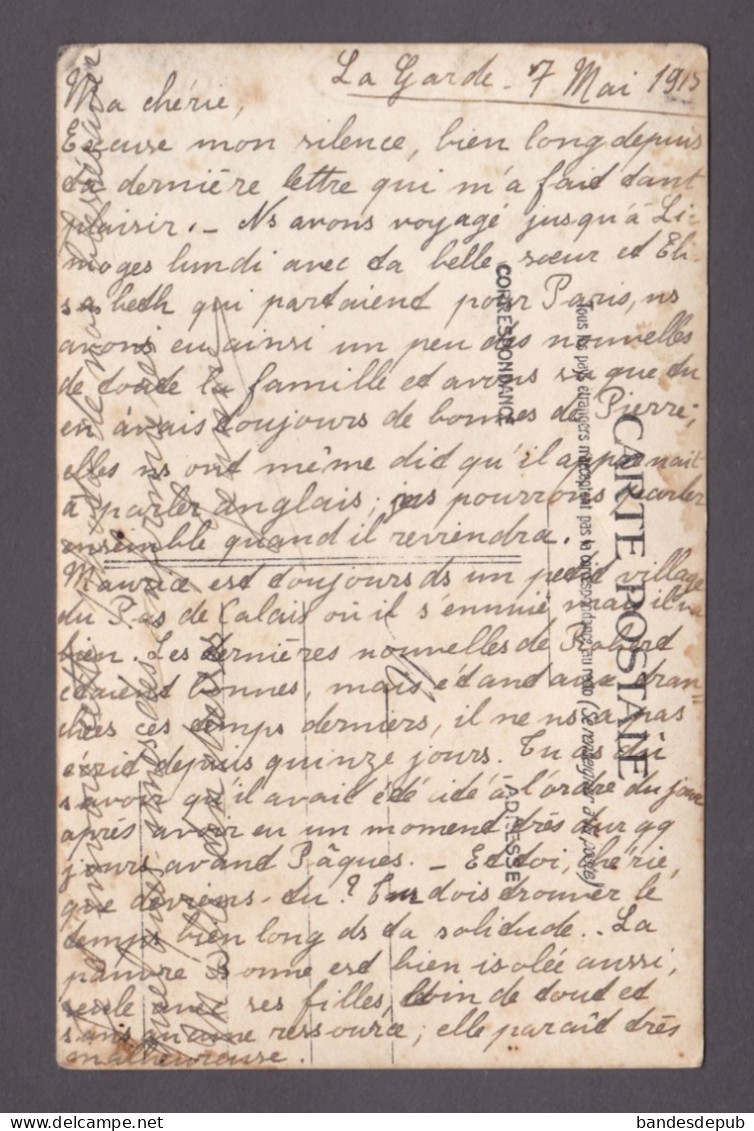 La Garde - 7 Mai 1915
Ma chérie,
Excuse mon silence, bien long depuis
ta dernière lettre qui m'a fait tant
plaisir. - Ns avons voyagé jusqu'à Li-
moges lundi avec ta belle sœur et Eli-
sabeth qui partaient pour Paris, ns
avons eu ainsi un peu des nouvelles
de toute la famille et avons su que tu
en avais toujours de bonnes de Pierre,
elles ns ont même dit qu'il apprenait
à parler anglais; ns pourrons parler
ensemble quand il reviendra.
Maurice est toujours ds un petit village
du Pas de Calais où il s'ennuie mais il va
bien. Les dernières nouvelles de Robert
étaient bonnes, mais étant aux tran-
chées ces temps derniers, il ne ns a pas
écrit depuis quinze jours. Tu as du
savoir qu'il avait été cité à l'ordre du jour
après avoir eu un moment très dur qq
jours avant Pâques. - Et toi, chérie,
que deviens-tu? Tu dois trouver le
temps bien long ds ta solitude.. La
pauvre Bonne est bien isolée aussi,
seule avec ses filles, loin de tout et
sans aucune ressource; elle paraît très
malheureuse.
CARTE POSTALE
Tous les pays étrangers n'acceptent pas la correspondance au recto (Se renseigner à la poste)
CORRESPONDANCE
ADRESSE
bandesdepub